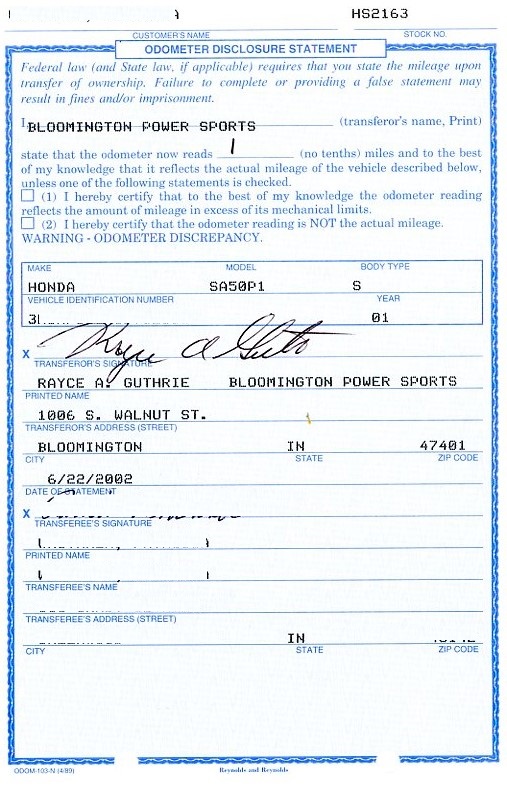 HS2163
CUSTOMER'S NAME STOCK NO.
ODOMETER DISCLOSURE STATEMENT
Federal law (and State law, if applicable) requires that you state the mileage upon
transfer of ownership. Failure to complete or providing a false statement may
result in fines and/or imprisonment.
I, BLOOMINGTON POWER SPORTS (transferor's name, Print)
state that the odometer now reads 1 (no tenths) miles and to the best
of my knowledge that it reflects the actual mileage of the vehicle described below,
unless one of the following statements is checked.
(1) I hereby certify that to the best of my knowledge the odometer reading
reflects the amount of mileage in excess of its mechanical limits.
(2) I hereby certify that the odometer reading is NOT the actual mileage.
WARNING - ODOMETER DISCREPANCY.
MAKE MODEL BODY TYPE
HONDA SA50P1 S
VEHICLE IDENTIFICATION NUMBER YEAR
01
X
TRANSFEROR'S SIGNATURE
RAYCE A. GUTHRIE BLOOMINGTON POWER SPORTS
PRINTED NAME
1006 S. WALNUT ST.
TRANSFEROR'S ADDRESS (STREET)
BLOOMINGTON IN 47401
CITY STATE ZIP CODE
6/22/2002
DATE OF STATEMENT
X
TRANSFEREE'S SIGNATURE
PRINTED NAME
TRANSFEREE'S NAME
TRANSFEREE'S ADDRESS (STREET)
IN
CITY STATE ZIP CODE
ODOM-103-N (4/89) Reynolds and Reynolds